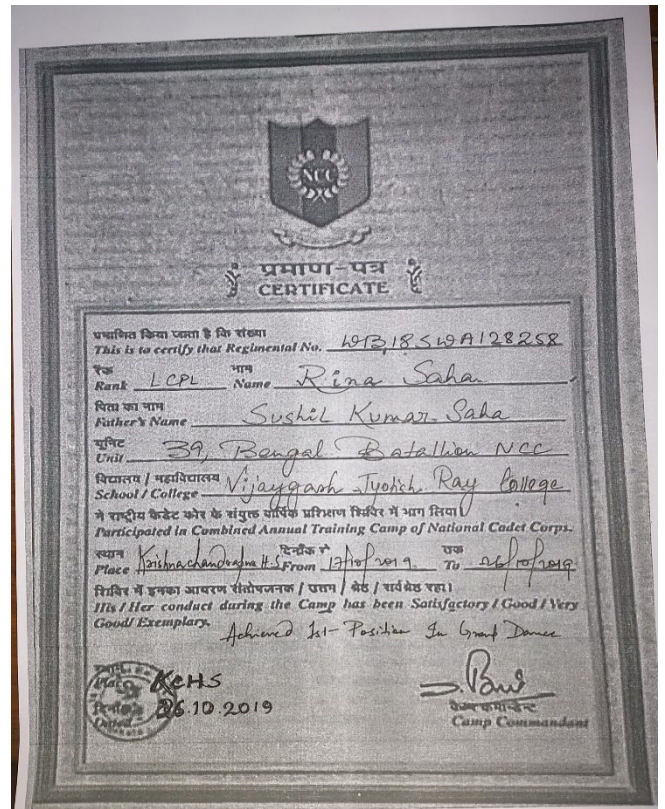 NCC
प्रमाण-पत्र
CERTIFICATE
प्रमाणित किया जाता है कि संख्या
This is to certify that Regimental No. WB18SWA128258
रैंक नाम
Rank LCPL Name Rina Saha
पिता का नाम
Father's Name Sushil Kumar Saha
यूनिट
Unit 39, Bengal Batallion NCC
विद्यालय / महाविद्यालय
School / College Vijaygarh Jyotish Ray College
ने राष्ट्रीय कैडेट कोर के संयुक्त वार्षिक प्रशिक्षण शिविर में भाग लिया।
Participated in Combined Annual Training Camp of National Cadet Corps.
स्थान दिनाँक से तक
Place Krishnachandrapur H.S From 17/10/2019 To 26/10/2019
शिविर में इनका आचरण संतोषजनक / उत्तम / श्रेष्ठ / सर्वश्रेष्ठ रहा।
His / Her conduct during the Camp has been Satisfactory / Good / Very
Good/ Exemplary.
Achieved 1st- Position In Group Dance
Place KCHS
दिनाँक 26.10.2019
Dated
कैम्प कमान्डेन्ट
Camp Commandant